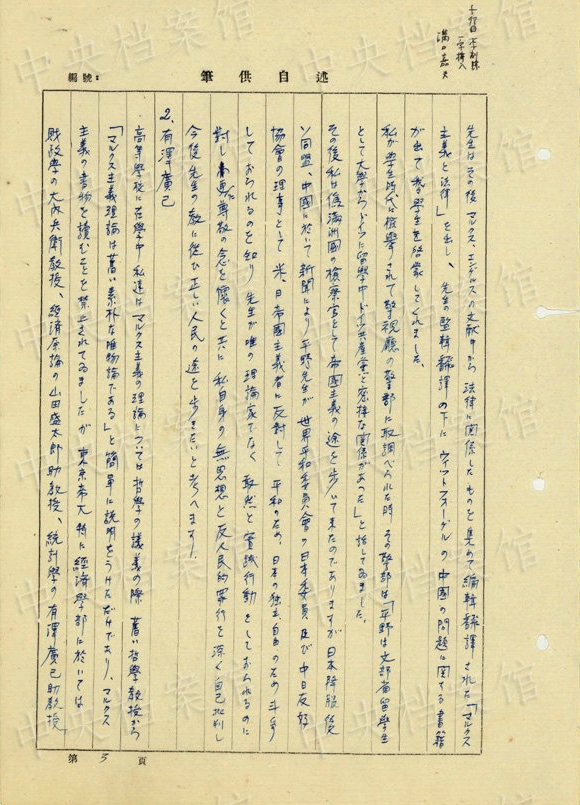 十行目一字削除
一字挿入
溝口嘉夫
編號:
筆供自述
先生はその後マルクス、エンゲルスの文献中から法律に関係したものを集めて編輯飜譯された「マルクス
主義と法律」を出し、先生の監輯飜譯の下にウィットフォーゲルの中國の問題に関する書籍
が出て我々學生を啓蒙してくれました。
私が學生時代に檢擧されて警視廳の警部に取調べられた時、その警部は「平野は文部省留學生
として大學からドイツに留學中ドイツ共産党と密接な関係があった」と話してゐました。
その後私は偽満洲國の檢察官として帝國主義の途を歩いて来たのでありますが日本降服後
ソ同盟、中國に於いて新聞により平野先生が世界平和委員會の日本委員及び中日友好
協會の理事として米、日帝國主義者に反対して平和のため、日本の独立、自由のため斗争
しておられるのを知り先生が唯の理論家でなく敢然と實践行動をしておられるのに
対し尊敬の念を懐くと共に私自身の無思想と反人民的罪行を深く自己批判し
今後先生の教に従ひ正しい人民の途を歩きたいと考へます。
2. 有澤廣己
高等學校に在學中私達はマルクス主義の理論については哲學の講義の際、蓄い哲學教授から
「マルクス主義理論は蓄い素朴な唯物論である」と簡単に説明をうけただけであり、マルクス
主義の書物を讀むことを禁止されてゐましたが東京帝大特に経済學部に於いては
財政學の大内兵衛教授、経済原論の山田盛太郎助教授、統計學の有澤廣己助教授、
第 3 頁
中央档案馆